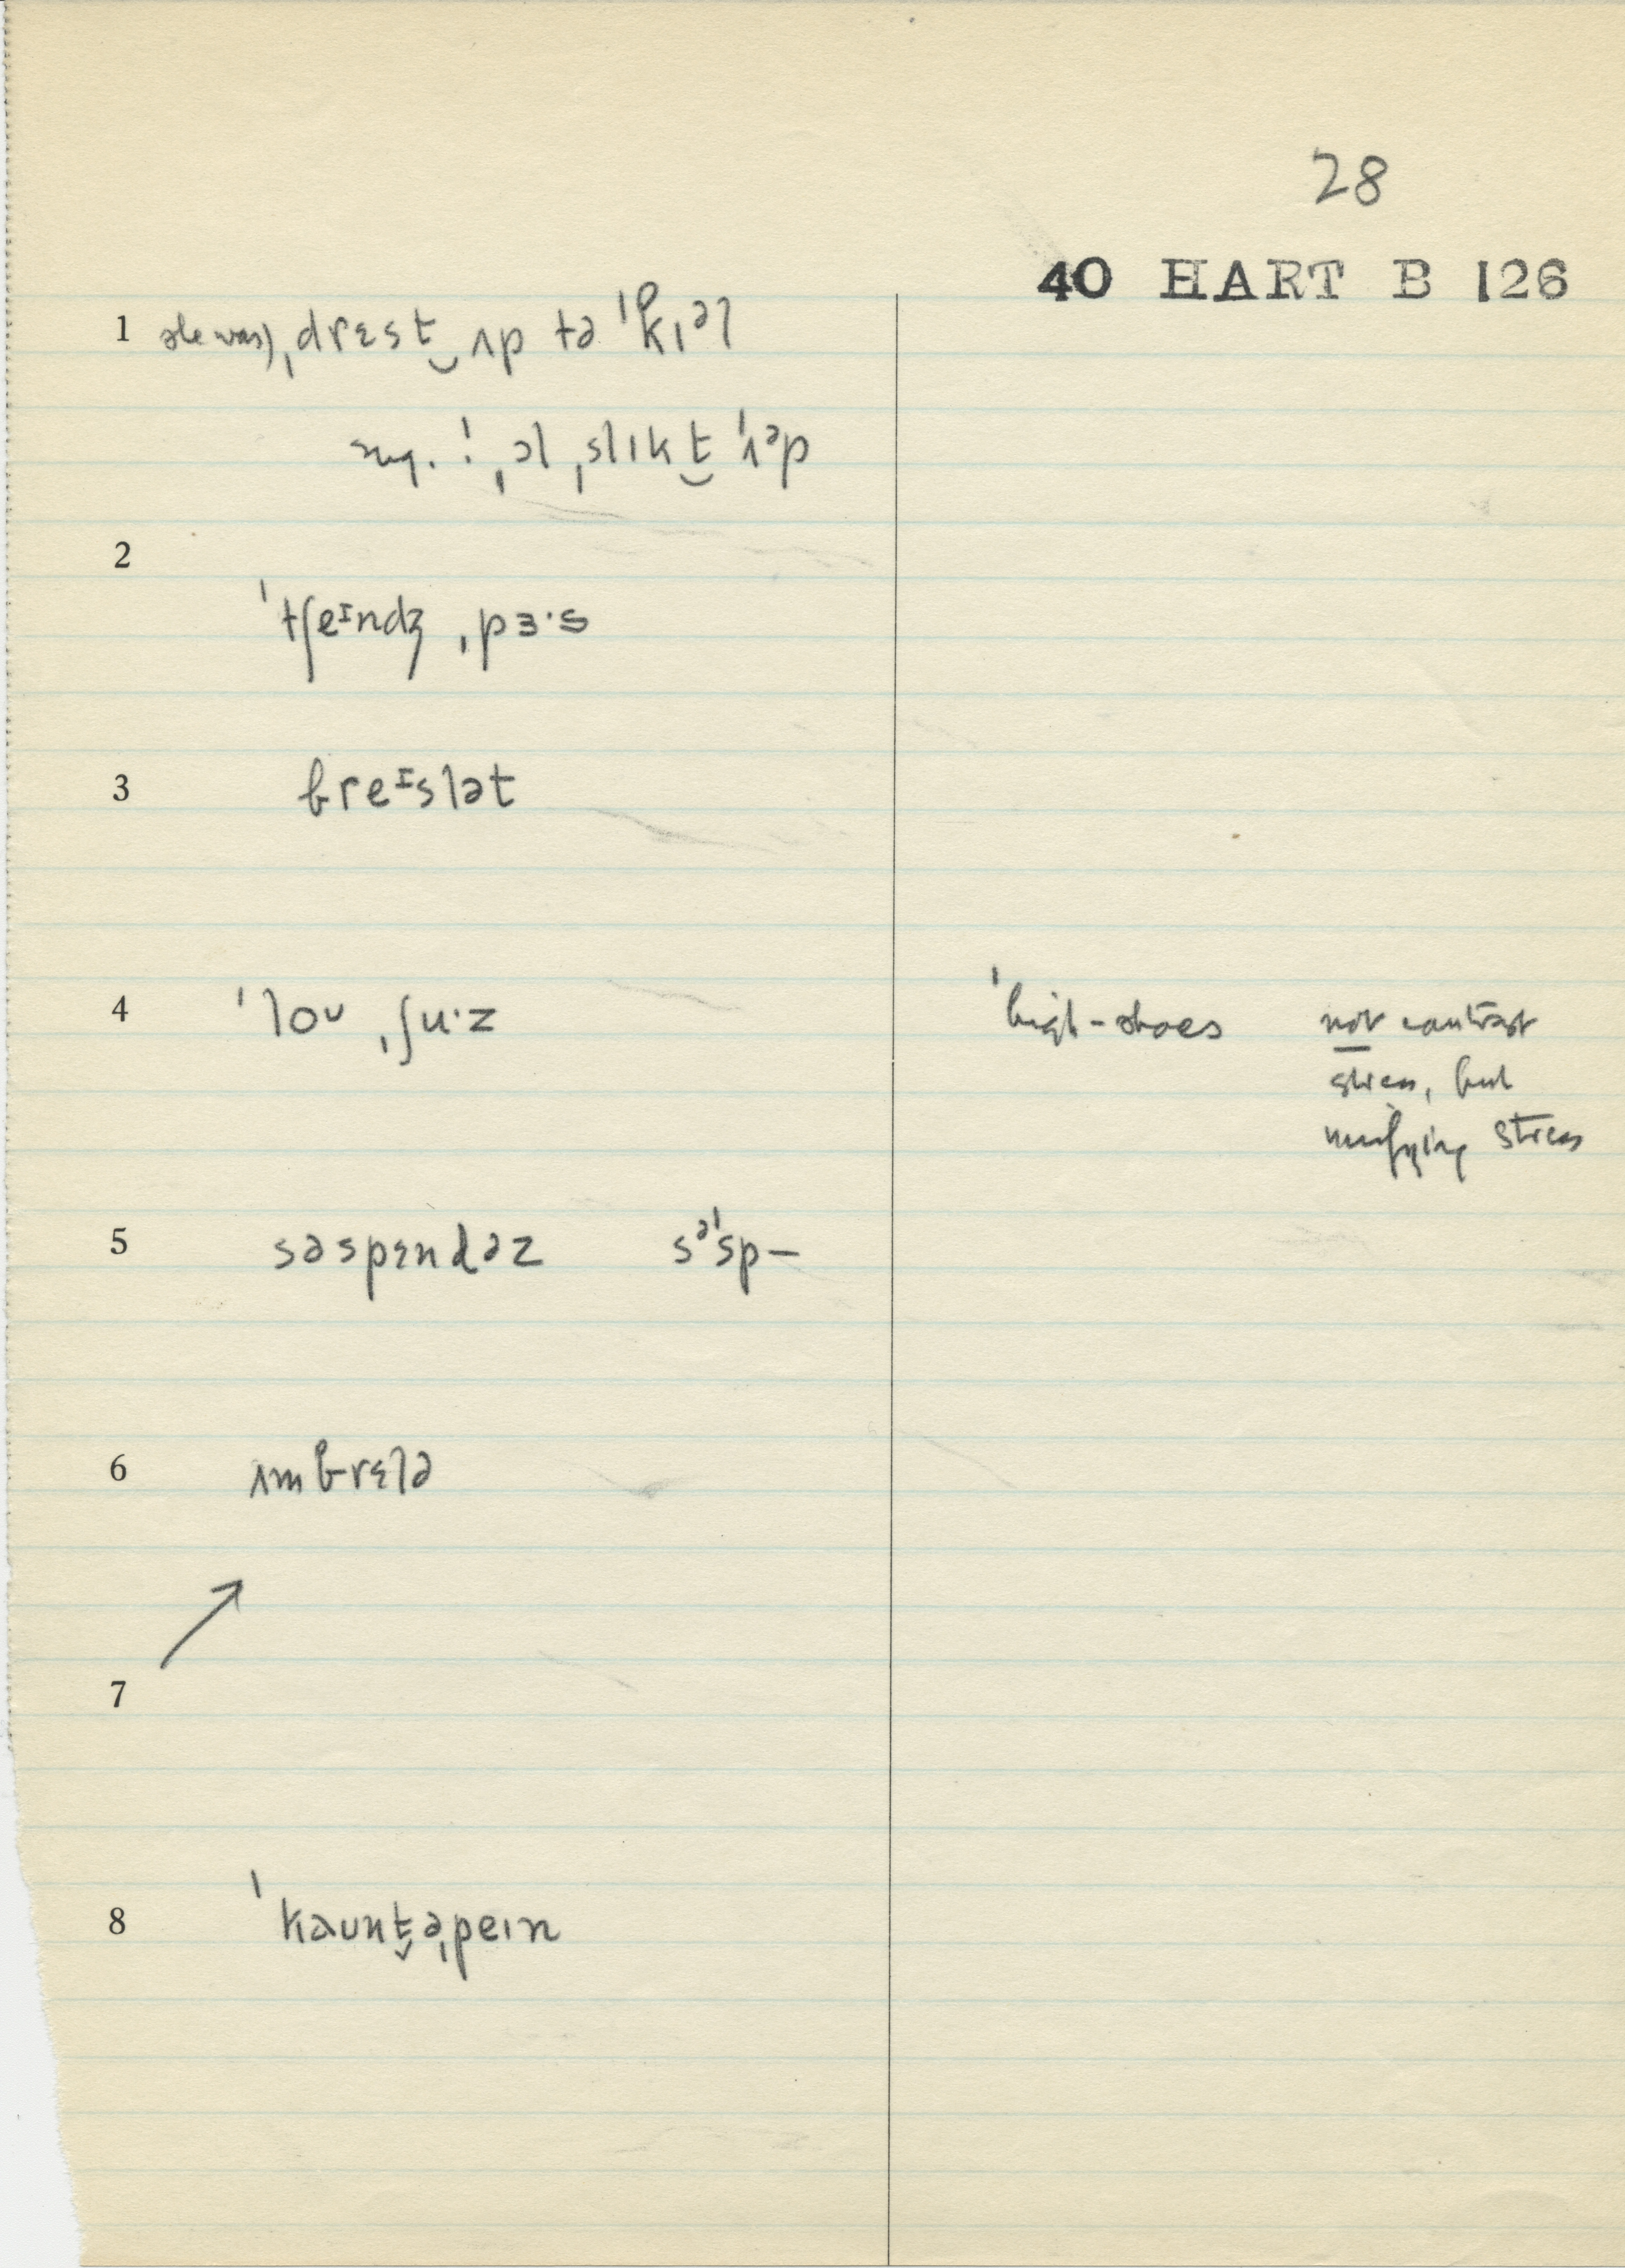 28
40 HART B 126
1 she was) ˌdrɛst̬ ʌp tə ˈkɪəl
sug. ! ˌəl ˌslɪkt̬ ˈʌᵊp
2
ˈtʃeᴵndʒ ˌpɜ·s
3 breᴵslət
4 ˈloʊ ˌʃu·z ˈhigh-shoes not contrast
stress, but
unifying stress
5 səspɛndəz sᵊˈsp–
6 ʌmbrɛlə
7
8 ˈkaunt̬əˌpeɪn